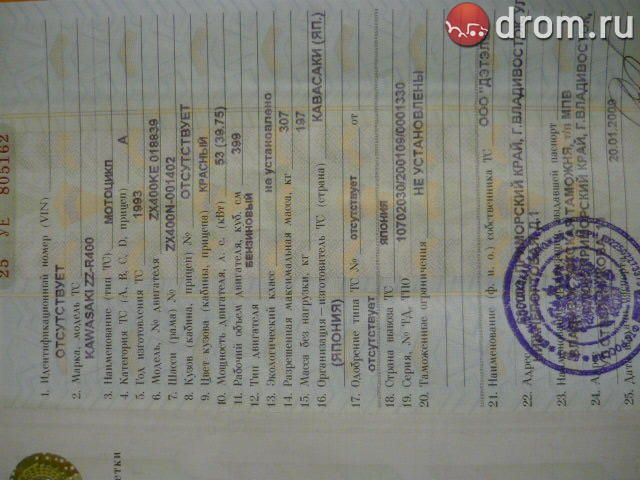 drom.ru
25 УЕ 805162
1. Идентификационный номер (VIN)
ОТСУТСТВУЕТ
2. Марка, модель ТС
KAWASAKI ZZ-R400
3. Наименование (тип ТС) МОТОЦИКЛ
4. Категория ТС (A, B, C, D, прицеп) A
5. Год изготовления ТС 1993
6. Модель, № двигателя ZX400KE 018839
7. Шасси (рама) № ZX400N-001402
8. Кузов (кабина, прицеп) № ОТСУТСТВУЕТ
9. Цвет кузова (кабины, прицепа) КРАСНЫЙ
10. Мощность двигателя, л. с. (кВт) 53 (39,75)
11. Рабочий объем двигателя, куб. см 399
12. Тип двигателя БЕНЗИНОВЫЙ
13. Экологический класс не установлено
14. Разрешенная максимальная масса, кг 307
15. Масса без нагрузки, кг 197
16. Организация–изготовитель ТС (страна) КАВАСАКИ (ЯП.)
(ЯПОНИЯ)
17. Одобрение типа ТС № отсутствует от
отсутствует
18. Страна вывоза ТС ЯПОНИЯ
19. Серия, № ТД, ТПО 10702030/200109/0001330
20. Таможенные ограничения НЕ УСТАНОВЛЕНЫ
21. Наименование (ф. и. о.) собственника ТС ООО "ДЭТЭЛ
22. Адрес МОРСКИЙ КРАЙ, Г.ВЛАДИВОСТ
23. паспорт
ТАМОЖНЯ, т/п МПВ
24. КРАЙ, Г.ВЛАДИВОСТОК,
25. Дат 20.01.2009
етки